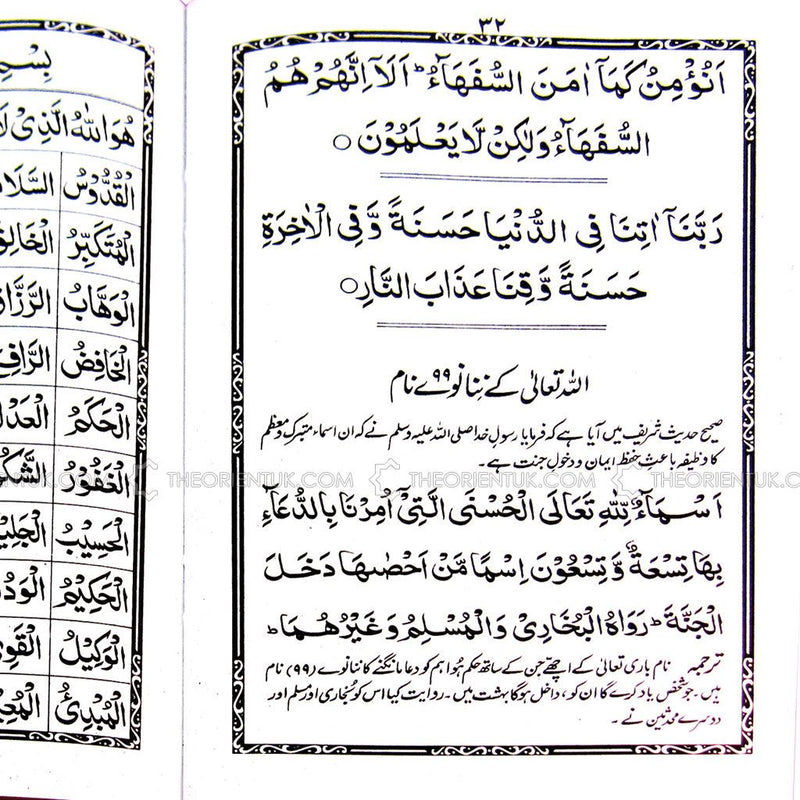 ٣٢
اَنُؤْمِنُ كَمَآ اٰمَنَ السُّفَهَآءُ ؕ اَلَآ اِنَّهُمْ هُمُ
السُّفَهَآءُ وَلٰكِنْ لَّا يَعْلَمُوْنَ ○
رَبَّنَآ اٰتِنَا فِى الدُّنْيَا حَسَنَةً وَّفِى الْاٰخِرَةِ
حَسَنَةً وَّقِنَا عَذَابَ النَّارِ ○
اللہ تعالیٰ کے ننانوے ۹۹ نام
صحیح حدیث شریف میں آیا ہے کہ فرمایا رسولِ خدا صلی اللہ علیہ وسلم نے کہ ان اسماء متبرک و معظم
کا وظیفہ باعثِ حفظِ ایمان و دخولِ جنت ہے۔
اَسْمَآءُ لِلّٰهِ تَعَالَى الْحُسْنٰى الَّتِىْٓ اُمِرْنَا بِالدُّعَآءِ
بِهَا تِسْعَةٌ وَّتِسْعُوْنَ اِسْمًا مَّنْ اَحْصٰىهَا دَخَلَ
الْجَنَّةَ ؕ رَوَاهُ الْبُخَارِىْ وَالْمُسْلِمُ وَغَيْرُهُمَا ؕ
ترجمہ نام باری تعالیٰ کے اچھے جن کے ساتھ حکم ہوا ہم کو دعا مانگنے کا ننانوے (۹۹) نام
ہیں۔ جو شخص یاد کرے گا ان کو، داخل ہوگا بہشت میں۔ روایت کیا اس کو بُخاری اور مسلم اور
دوسرے محدثین نے۔
بِسْمِ
هُوَ اللّٰهُ الَّذِىْ لَا
الْقُدُّوْسُ السَّلَا
الْمُتَكَبِّرُ الْخَالِقُ
الْوَهَّابُ الرَّزَّا
الْخَافِضُ الرَّافِعُ
الْحَكَمُ الْعَدْلُ
الْغَفُوْرُ الشَّكُوْ
الْحَسِيْبُ الْجَلِيْلُ
الْحَكِيْمُ الْوَدُ
الْوَكِيْلُ الْقَوِىُّ
الْمُبْدِئُ الْمُعِيْ
THEORIENTUK.COM THEORIENTUK.COM THEORIENTUK